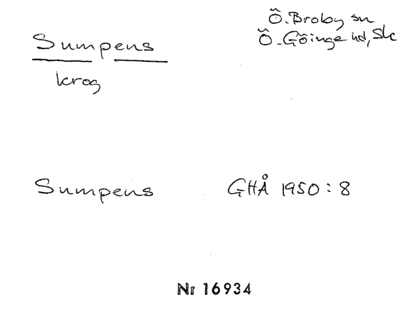 Sumpens
krog
Ö. Broby sn
Ö. Göinge hd, Sk
Sumpens GHÅ 1950:8
Nr 16934